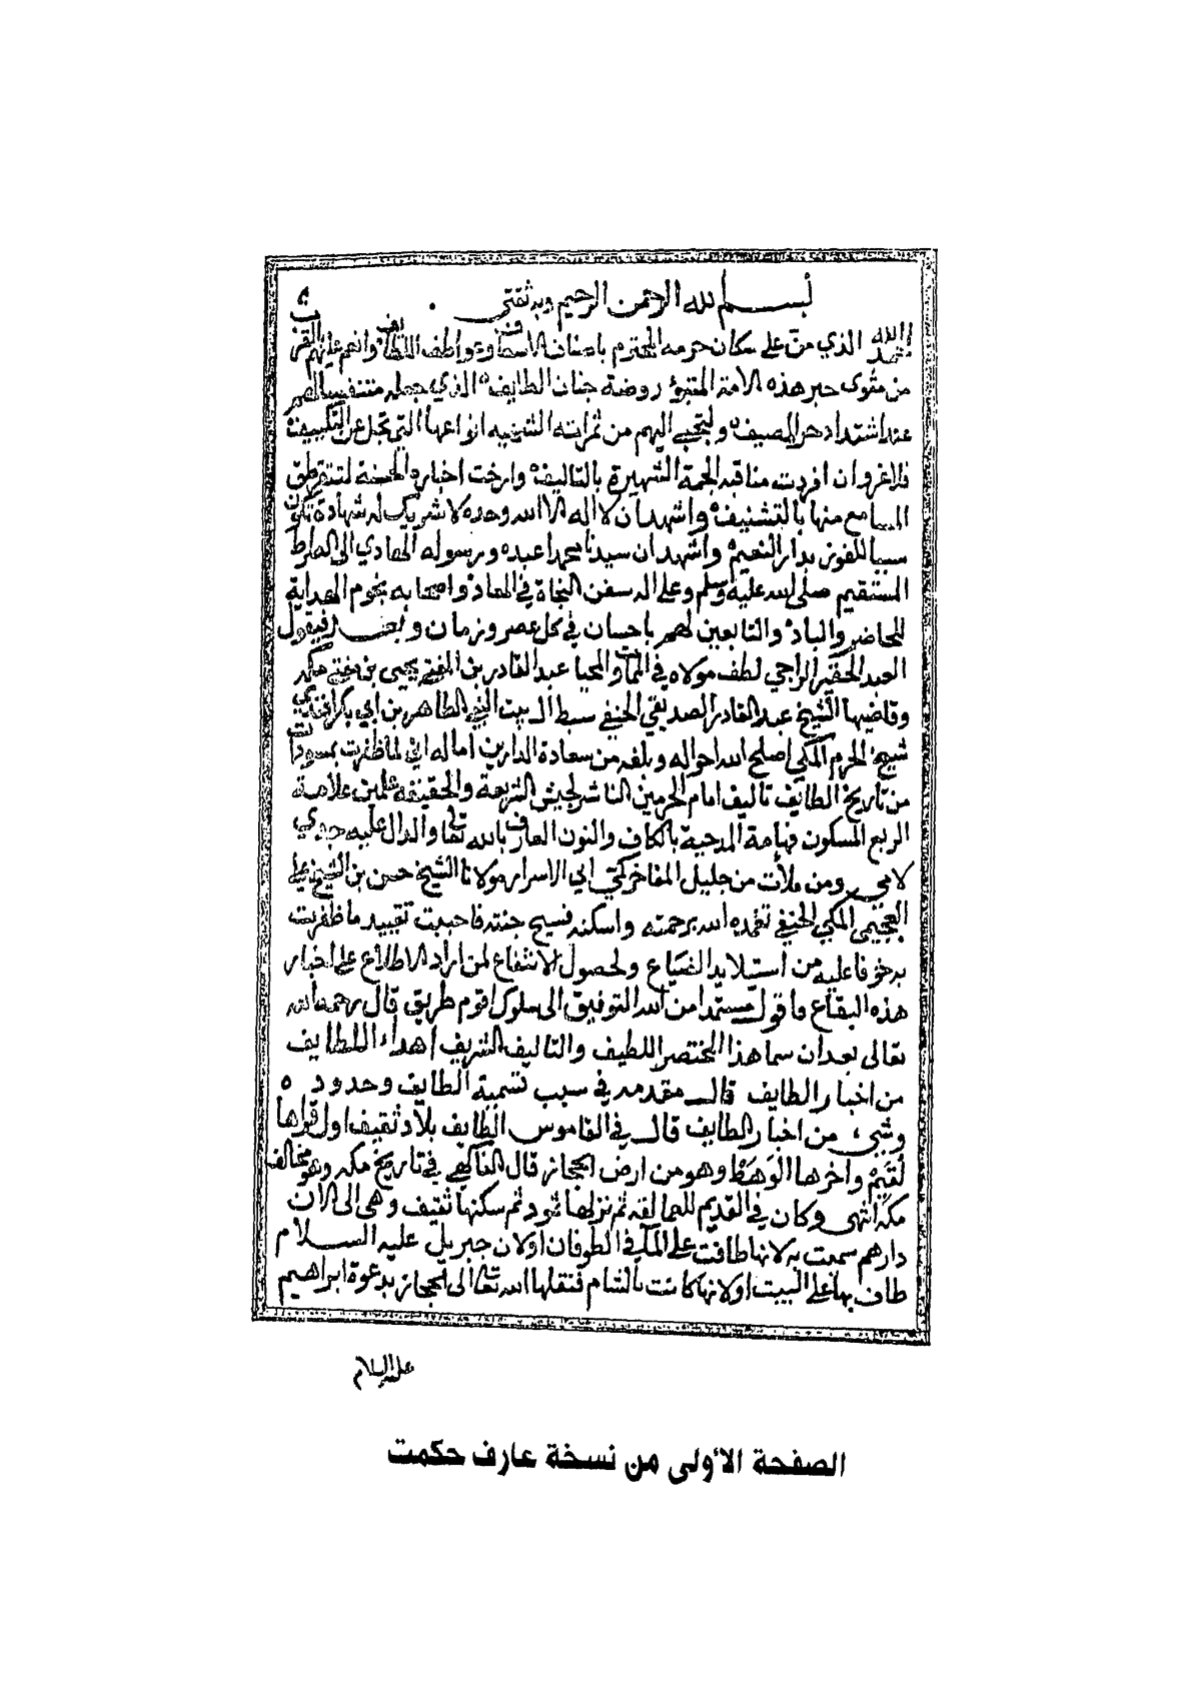 بسم الله الرحمن الرحيم وبه ثقتي
الحمد لله الذي من على سكان حرمه المحترم باصناف الاسعاف واطف اللطايف وانعم عليهم
من مثوى حبر هذه الامة المتبوء روضة جنان الطايف الذي جعله متنفسا لهم
عند اشتداد حر المصيف ولتجبى اليهم من ثمراته الشهيه انواعها التي تجل عن التكييف
فلا غروان افردت مناقبه الجمة الشهيرة بالتاليف وارخت اخباره الحسنة لتتقرطق
المسامع منها بالتشنيف واشهد ان لا اله الا الله وحده لا شريك له شهادة تكون
سببا للفوز بدار النعيم واشهد ان سيدنا محمدا عبده ورسوله الهادي الى الصراط
المستقيم صلى الله عليه وسلم وعلى اله سفن النجاة في المعاد واصحابه نجوم الهداية
للحاضر والباد والتابعين لهم باحسان في كل عصر وزمان وبعد فيقول
العبد الحقير الراجي لطف مولاه في الممات والمحيا عبد القادر بن المفتي يحيى بن مفتي مكه
وقاضيها الشيخ عبد القادر الصديقي الحنفي سبط ال بيت النبي الطاهر بن ابي بكر افندي
شيخ الحرم المكي اصلح الله احواله وبلغه من سعادة الدارين اماله اني لما ظفرت بمسودات
من تاريخ الطايف تاليف امام الحرمين الناشر لجيش الشريعة والحقيقة علمين علامة
الربع المسكون فهامة المدحية بالكاف والنون العارف بالله تعالى والدال عليه جدي
لامي ومن ملأت من جليل المفاخر كمي ابي الاسرار مولانا الشيخ حسن بن الشيخ علي
العجيمي المكي الحنفي تغمده الله برحمته واسكنه فسيح جنته فاحببت تقييد ما ظفرت
به خوفا عليه من استيلاء يد الضياع ولحصول الانتفاع لمن اراد الاطلاع على اخبار
هذه البقاع فاقول مستمدا من الله التوفيق الى سلوك اقوم طريق قال رحمه الله
تعالى بعد ان سما هذا المختصر اللطيف والتاليف الشريف اهداء اللطايف
من اخبار الطايف قال مقدمه في سبب تسمية الطايف وحدوده
وشيء من اخبار الطايف قال في القاموس الطايف بلاد ثقيف اول قراها
لقيم واخرها الوهط وهو من ارض الحجاز قال الفاكهي في تاريخ مكه وهو مخالف
مكه انتهى وكان في القديم للعمالقه ثم نزلها ثمود ثم سكنها ثقيف وهي الى الان
دارهم سميت به لانها طافت على الماء في الطوفان او لان جبريل عليه السلام
طاف بها على البيت او لانها كانت بالشام فنقلها الله تعالى الى الحجاز بدعوة ابراهيم
عليه السلام
الصفحة الأولى من نسخة عارف حكمت